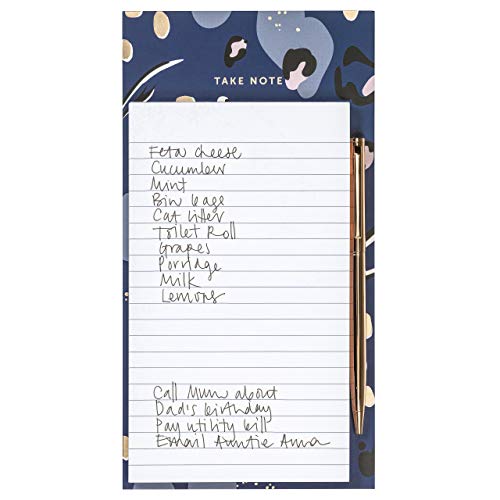 TAKE NOTE
Feta cheese
Cucumber
Mint
Bin bags
Cat litter
Toilet Roll
Grapes
Porridge
Milk
Lemons
Call Mum about
Dad's birthday
Pay utility bill
Email Auntie Anna